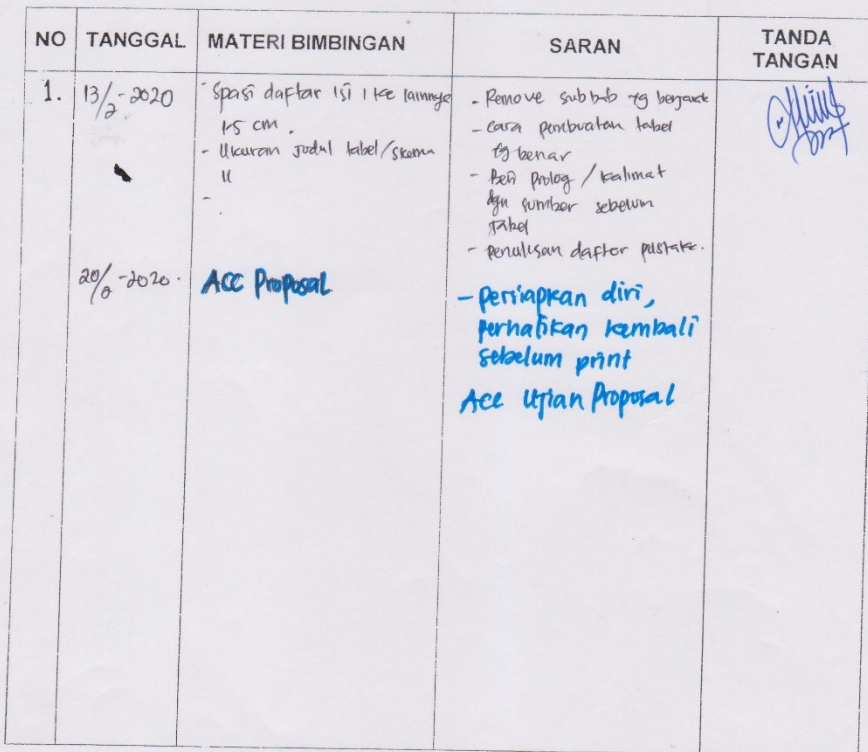 NO TANGGAL MATERI BIMBINGAN SARAN TANDA TANGAN
1. 13/2-2020
- Spasi daftar isi 1 ke lainnya
1,5 cm.
- Ukuran judul tabel/skema
11
-
- Remove subbab yg
- Cara pembuatan tabel
yg benar
- Beri prolog / kalimat
dgn sumber sebelum
tabel
- penulisan daftar pustaka.
20/2-2020.
ACC Proposal
- persiapkan diri,
perhatikan kembali
sebelum print
Acc Ujian Proposal